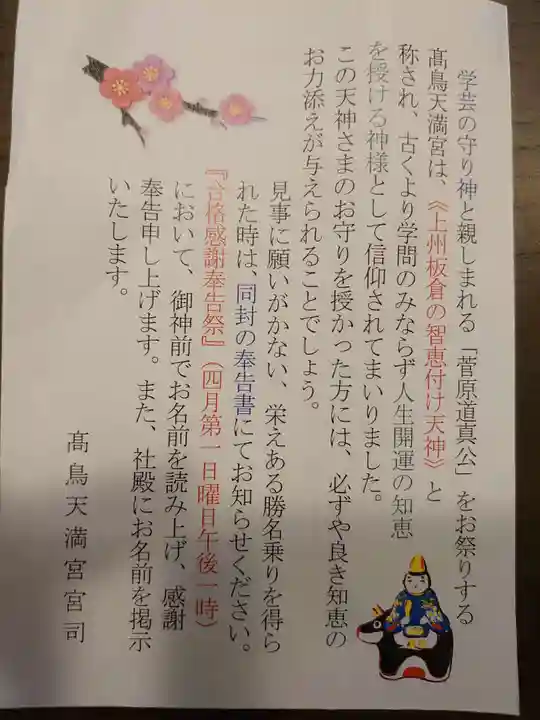 学芸の守り神と親しまれる「菅原道真公」をお祭りする
髙鳥天満宮は、《上州板倉の智恵付け天神》と
称され、古くより学問のみならず人生開運の知恵
を授ける神様として信仰されてまいりました。
この天神さまのお守りを授かった方には、必ずや良き知恵の
お力添えが与えられることでしょう。
見事に願いがかない、栄えある勝名乗りを得ら
れた時は、同封の奉告書にてお知らせください。
『合格感謝奉告祭』（四月第一日曜日午後一時）
において、御神前でお名前を読み上げ、感謝
奉告申し上げます。また、社殿にお名前を掲示
いたします。
髙鳥天満宮宮司